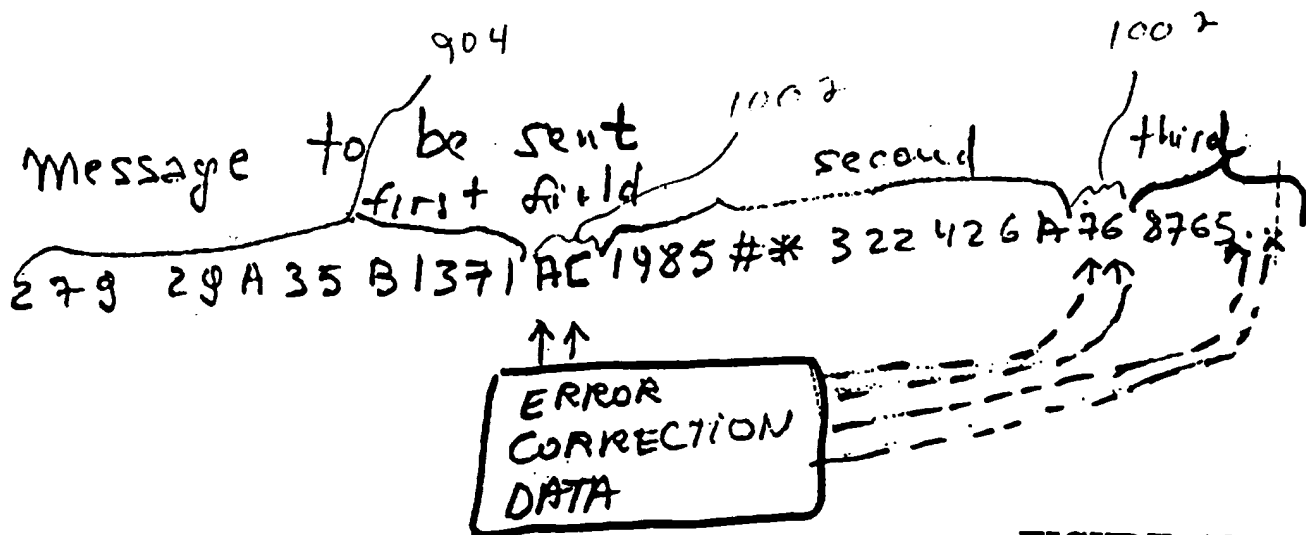 904
1002
1002
Message to be sent
first field
second
third
279 29A35B1371AC1985#* 322426A768765..
ERROR
CORRECTION
DATA